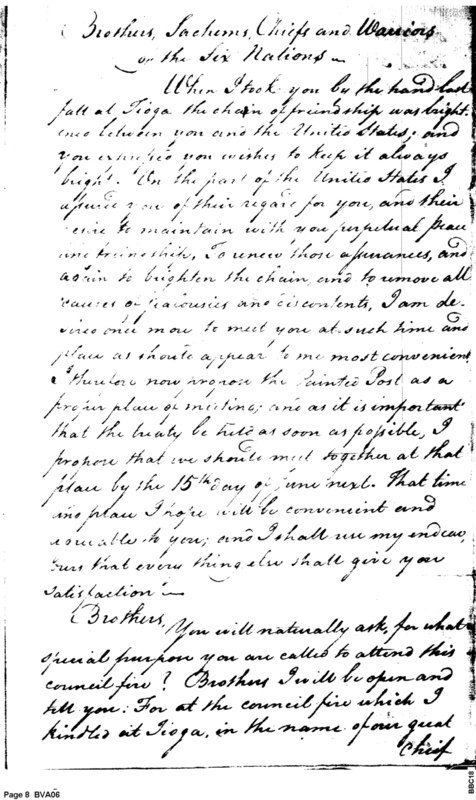 Brothers, Sachems, Chiefs and Warriors
of the Six Nations
When I took you by the hand last
fall at Tioga the chain of friendship was bright-
ened between you and the United States; and
you expressed you wishes to keep it always
bright. On the part of the United States I
assured you of their regard for you, and their
desire to maintain with you perpetual peace
and friendship. To renew those assurances, and
again to brighten the chain, and to remove all
causes of jealousies and discontents, I am de-
sired once more to meet you at such time and
place as should appear to me most convenient.
I therefore now propose the Painted Post as a
proper place of meeting; and as it is important
that the treaty be held as soon as possible, I
propose that we should meet together at that
place by the 15th day of June next. That time
and place I hope will be convenient and
agreeable to you; and I shall use my endeav
ours that every thing else shall give you
satisfaction
Brothers,
You will naturally ask, for what
special purpose you are called to attend this
council fire? Brothers I will be open and
tell you: For at the council fire which I
kindled at Tioga, in the name of our great
Chief
Page 8 BVA06
BBC18